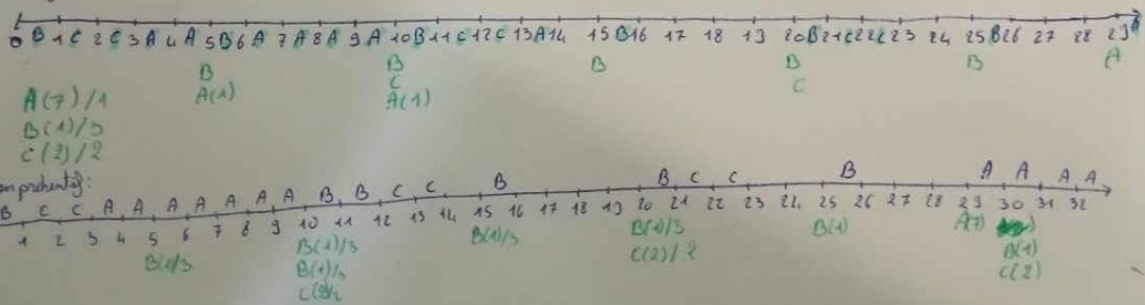 0 B 1 C 2 C 3 A 4 A 5 B 6 A 7 A 8 A 9 A 10 B 11 C 12 C 13 A 14 15 B 16 17 18 19 20 B 21 C 22 C 23 24 25 B 26 27 28 29
B B B B B A
A(1) C C
A(7)/1 A(1)
B(1)/3
C(2)/2
B C C A A A A A A A B B C C B B C C B A A A A
1 2 3 4 5 6 7 8 9 10 11 12 13 14 15 16 17 18 19 20 21 22 23 24 25 26 27 28 29 30 31 32
B(1)/3 B(1)/3 B(1)/3 B(1)/3 B(1) A(7)
B(1)/3 C(2)/2 B(1)
C(2)